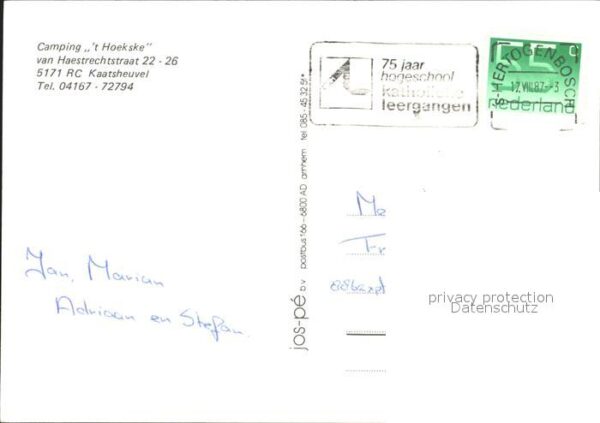 Camping „'t Hoekske"
van Haestrechtstraat 22 - 26
5171 RC Kaatsheuvel
Tel. 04167 - 72794
75 jaar
hogeschool
katholieke
leergangen
'S-HERTOGENBOSCH
17.VIII.87.-3
nederland
jos-pé b.v. postbus 166 – 6800 AD arnhem tel. 085-45 32 51*
Jan, Marian
Adriaan en Stefan.
privacy protection
Datenschutz